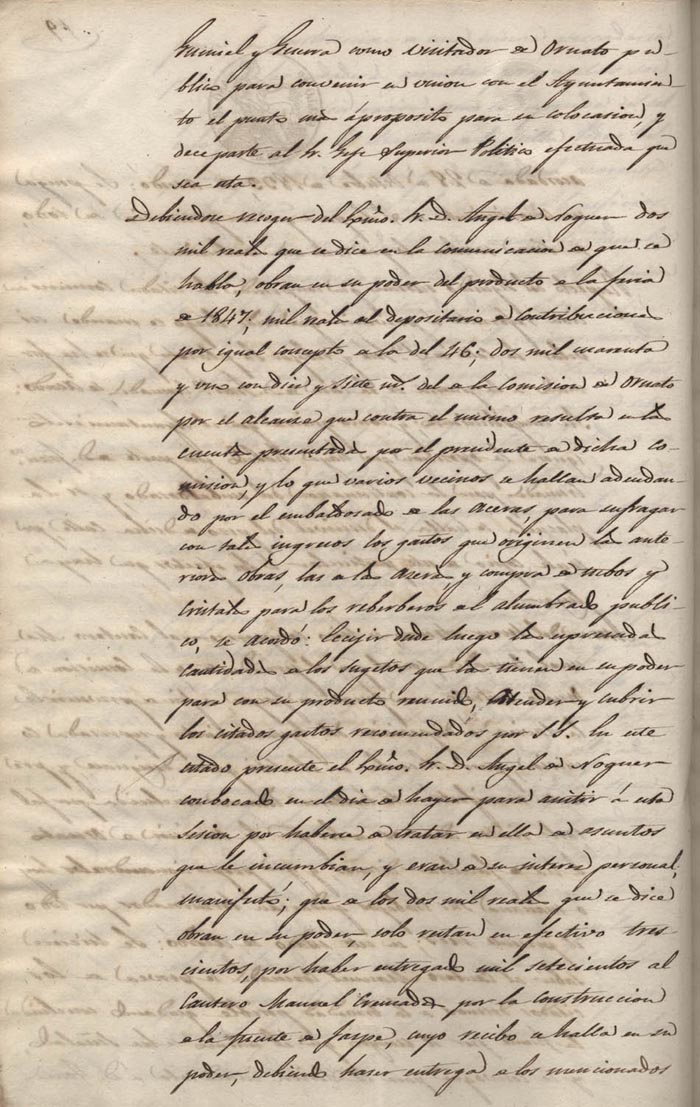 y Guerra como visitador de Ornato pu-
blico para convenir en union con el Ayuntamien-
to el punto mas áproposito para su colocasion, y
dece parte al Sr. Gefe Superior Politico efectuada que
sea esta.
Debiendose recoger del Exmo. Sr. D. Angel de Noguer dos
mil reales que se dice en la comunicacion de que se
habla, obran en su poder del producto de la feria
de 1847; mil reales al depositario de Contribuciones
por igual concepto de la del 46; dos mil cuarenta
y uno con diez y siete ms. del de la Comision de Ornato
por el alcanze que contra el mismo resulta en la
cuenta presentada por el presidente de dicha co-
mision, y lo que varios vecinos se hallan adeudan-
do por el embaldosado de las aceras, para sufragar
con tales ingresos los gastos que originen las ante-
riores obras, las de la Acera y compra de tubos y
cristales para los reberberos del alumbrado publi-
co, se acordó: Ecsijir desde luego las espresadas
cantidades de los sugetos que las tienen en su poder
para con su producto reunido, atender y cubrir
los citados gastos recomendados por S.S. En este
estado presente el Exmo. Sr. D. Angel de Noguer
convocado en el dia de hayer para asistir á esta
sesion por haberse de tratar en ella de asuntos
que le incumbian, y eran de su interes personal,
manifestó; que de los dos mil reales que se dice
obran en su poder, solo restan en efectivo tres-
cientos, por haber entregado mil setecientos al
Cantero Manuel Cremades por la construccion
de la fuente de Jaspe, cuyo recibo se halla en su
poder, debiendo hacer entrega de los mencionados